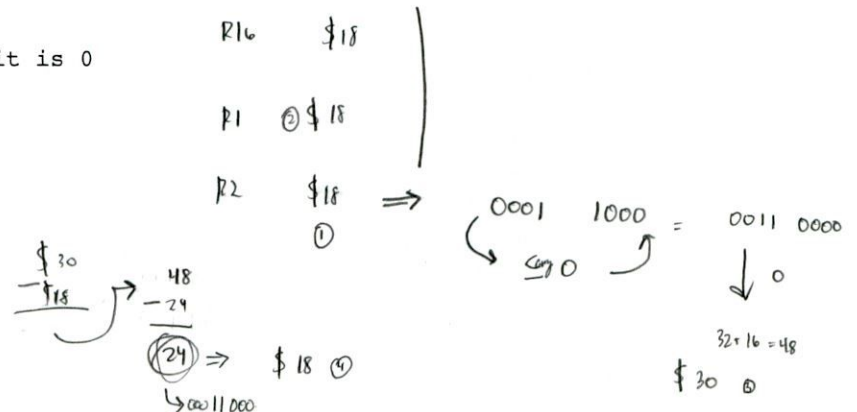 it is 0
R16 $18
R1 ② $18
R2 $18 ⇒
①
0001 1000 = 0011 0000
0
0
32+16=48
$30
$30
- $18
48
- 24
24 ⇒ $18 ④
↳00011000